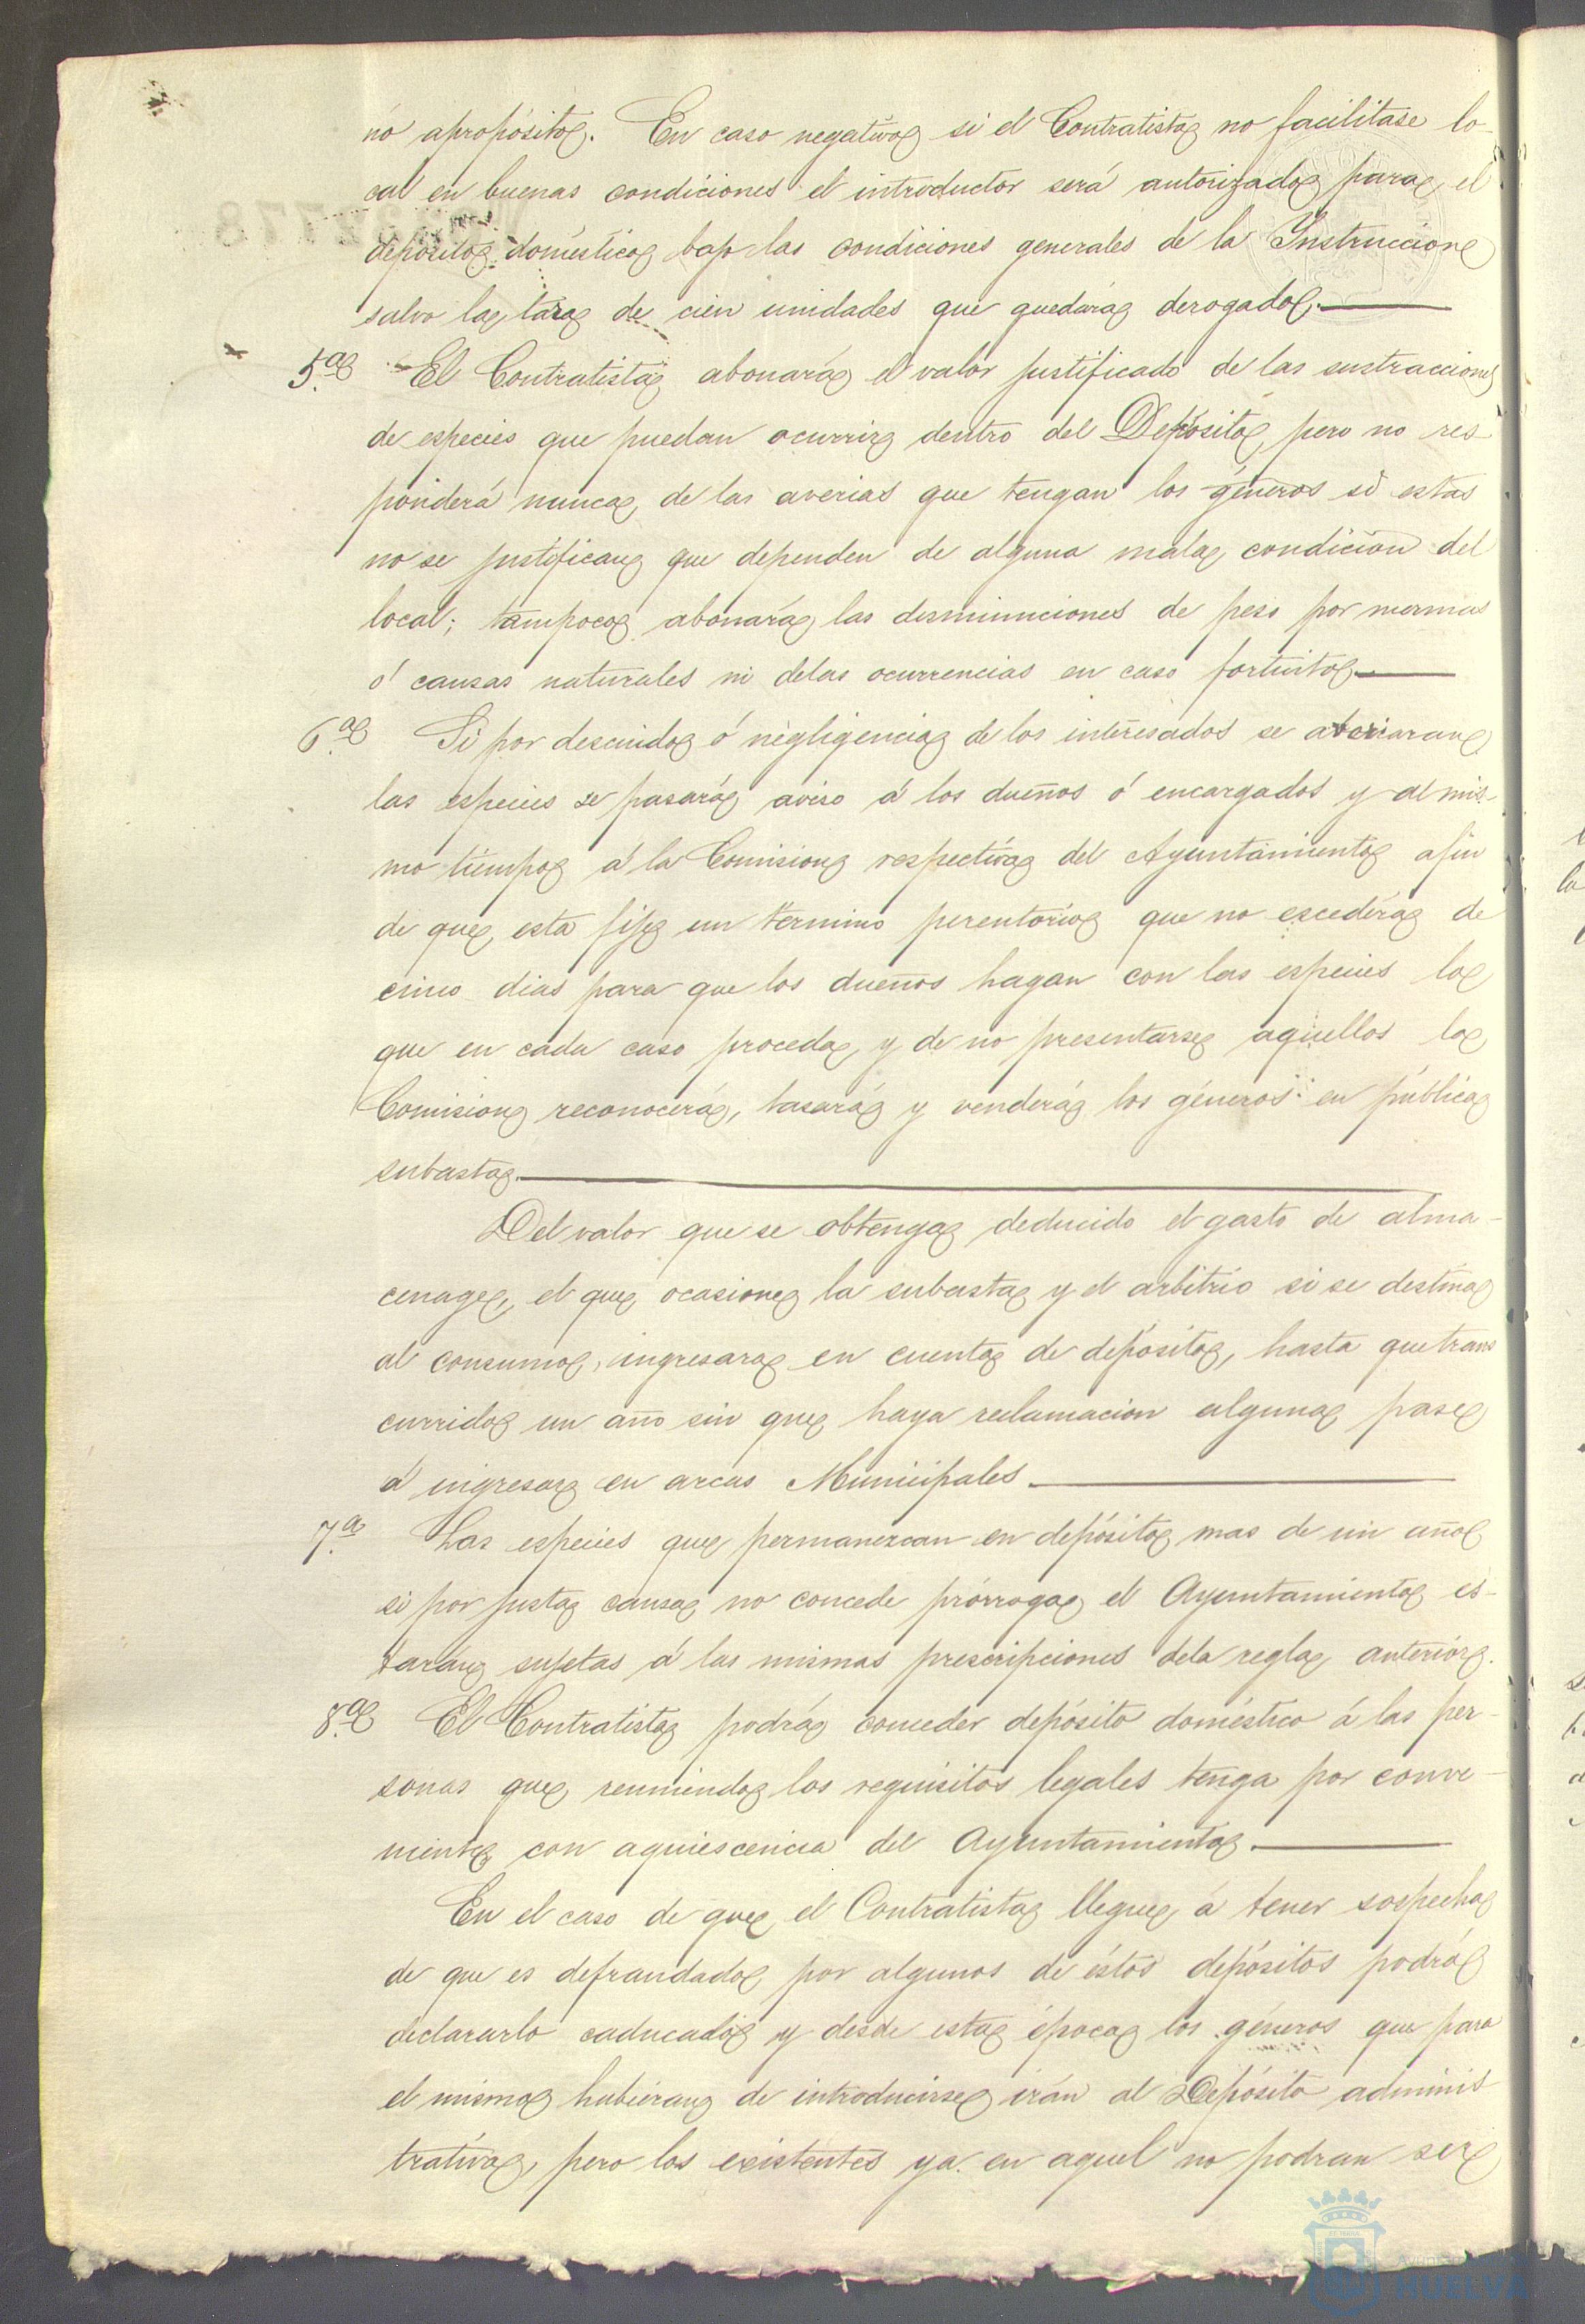 nó apropósito. En caso negativo si el Contratista no facilitase lo-
cal en buenas condiciones el introductor será autorizado para el
depósito doméstico bajo las condiciones generales de la Instruccion
salvo la tara de cien unidades que quedará derogado.
5.ª El Contratista abonará el valor justificado de las sustracciones
de especies que puedan ocurrir dentro del Depósito, pero no res-
ponderá nunca, de las averias que tengan los géneros si estas
no se justifican que dependen de alguna mala condicion del
local; tampoco abonará las disminuciones de peso por mermas
ó causas naturales ni delas ocurrencias en caso fortuito
6.ª Si por descuido ó negligencia de los interesados se averiaran
las especies se pasará aviso á los dueños ó encargados y al mis-
mo tiempo á la Comision respectiva del Ayuntamiento afin
de que, esta fije un termino perentorio que no escederá de
cinco dias para que los dueños hagan con las especies lo
que en cada caso proceda, y de no presentarse aquellos la
Comision reconocerá, tasará y venderá los géneros en pública
subasta.
Del valor que se obtenga deducido el gasto de alma-
cenage, el que ocasione la subasta y el arbitrio si se destina
al consumo, ingresara en cuenta de depósito, hasta que trans
currido un año sin que haya reclamacion alguna pase
á ingresar en arcas Municipales.
7.ª Las especies que permanezcan en depósito mas de un año
si por justa causa no concede prórroga el Ayuntamiento es-
taran sujetas á las mismas prescripciones dela regla anterior.
8.ª El Contratista podrá conceder depósito doméstico á las per-
sonas que reuniendo los requisitos legales tenga por conve-
niente con aquiescencia del Ayuntamiento.
En el caso de que el Contratista llegue á tener sospecha
de que es defrandado por algunos de éstos depósitos podrá
declararlo caducado y desde esta época los géneros que para
el mismo hubieran de introducirse irán al Depósito adminis
trativo, pero los existentes ya en aquel no podran ser
HUELVA